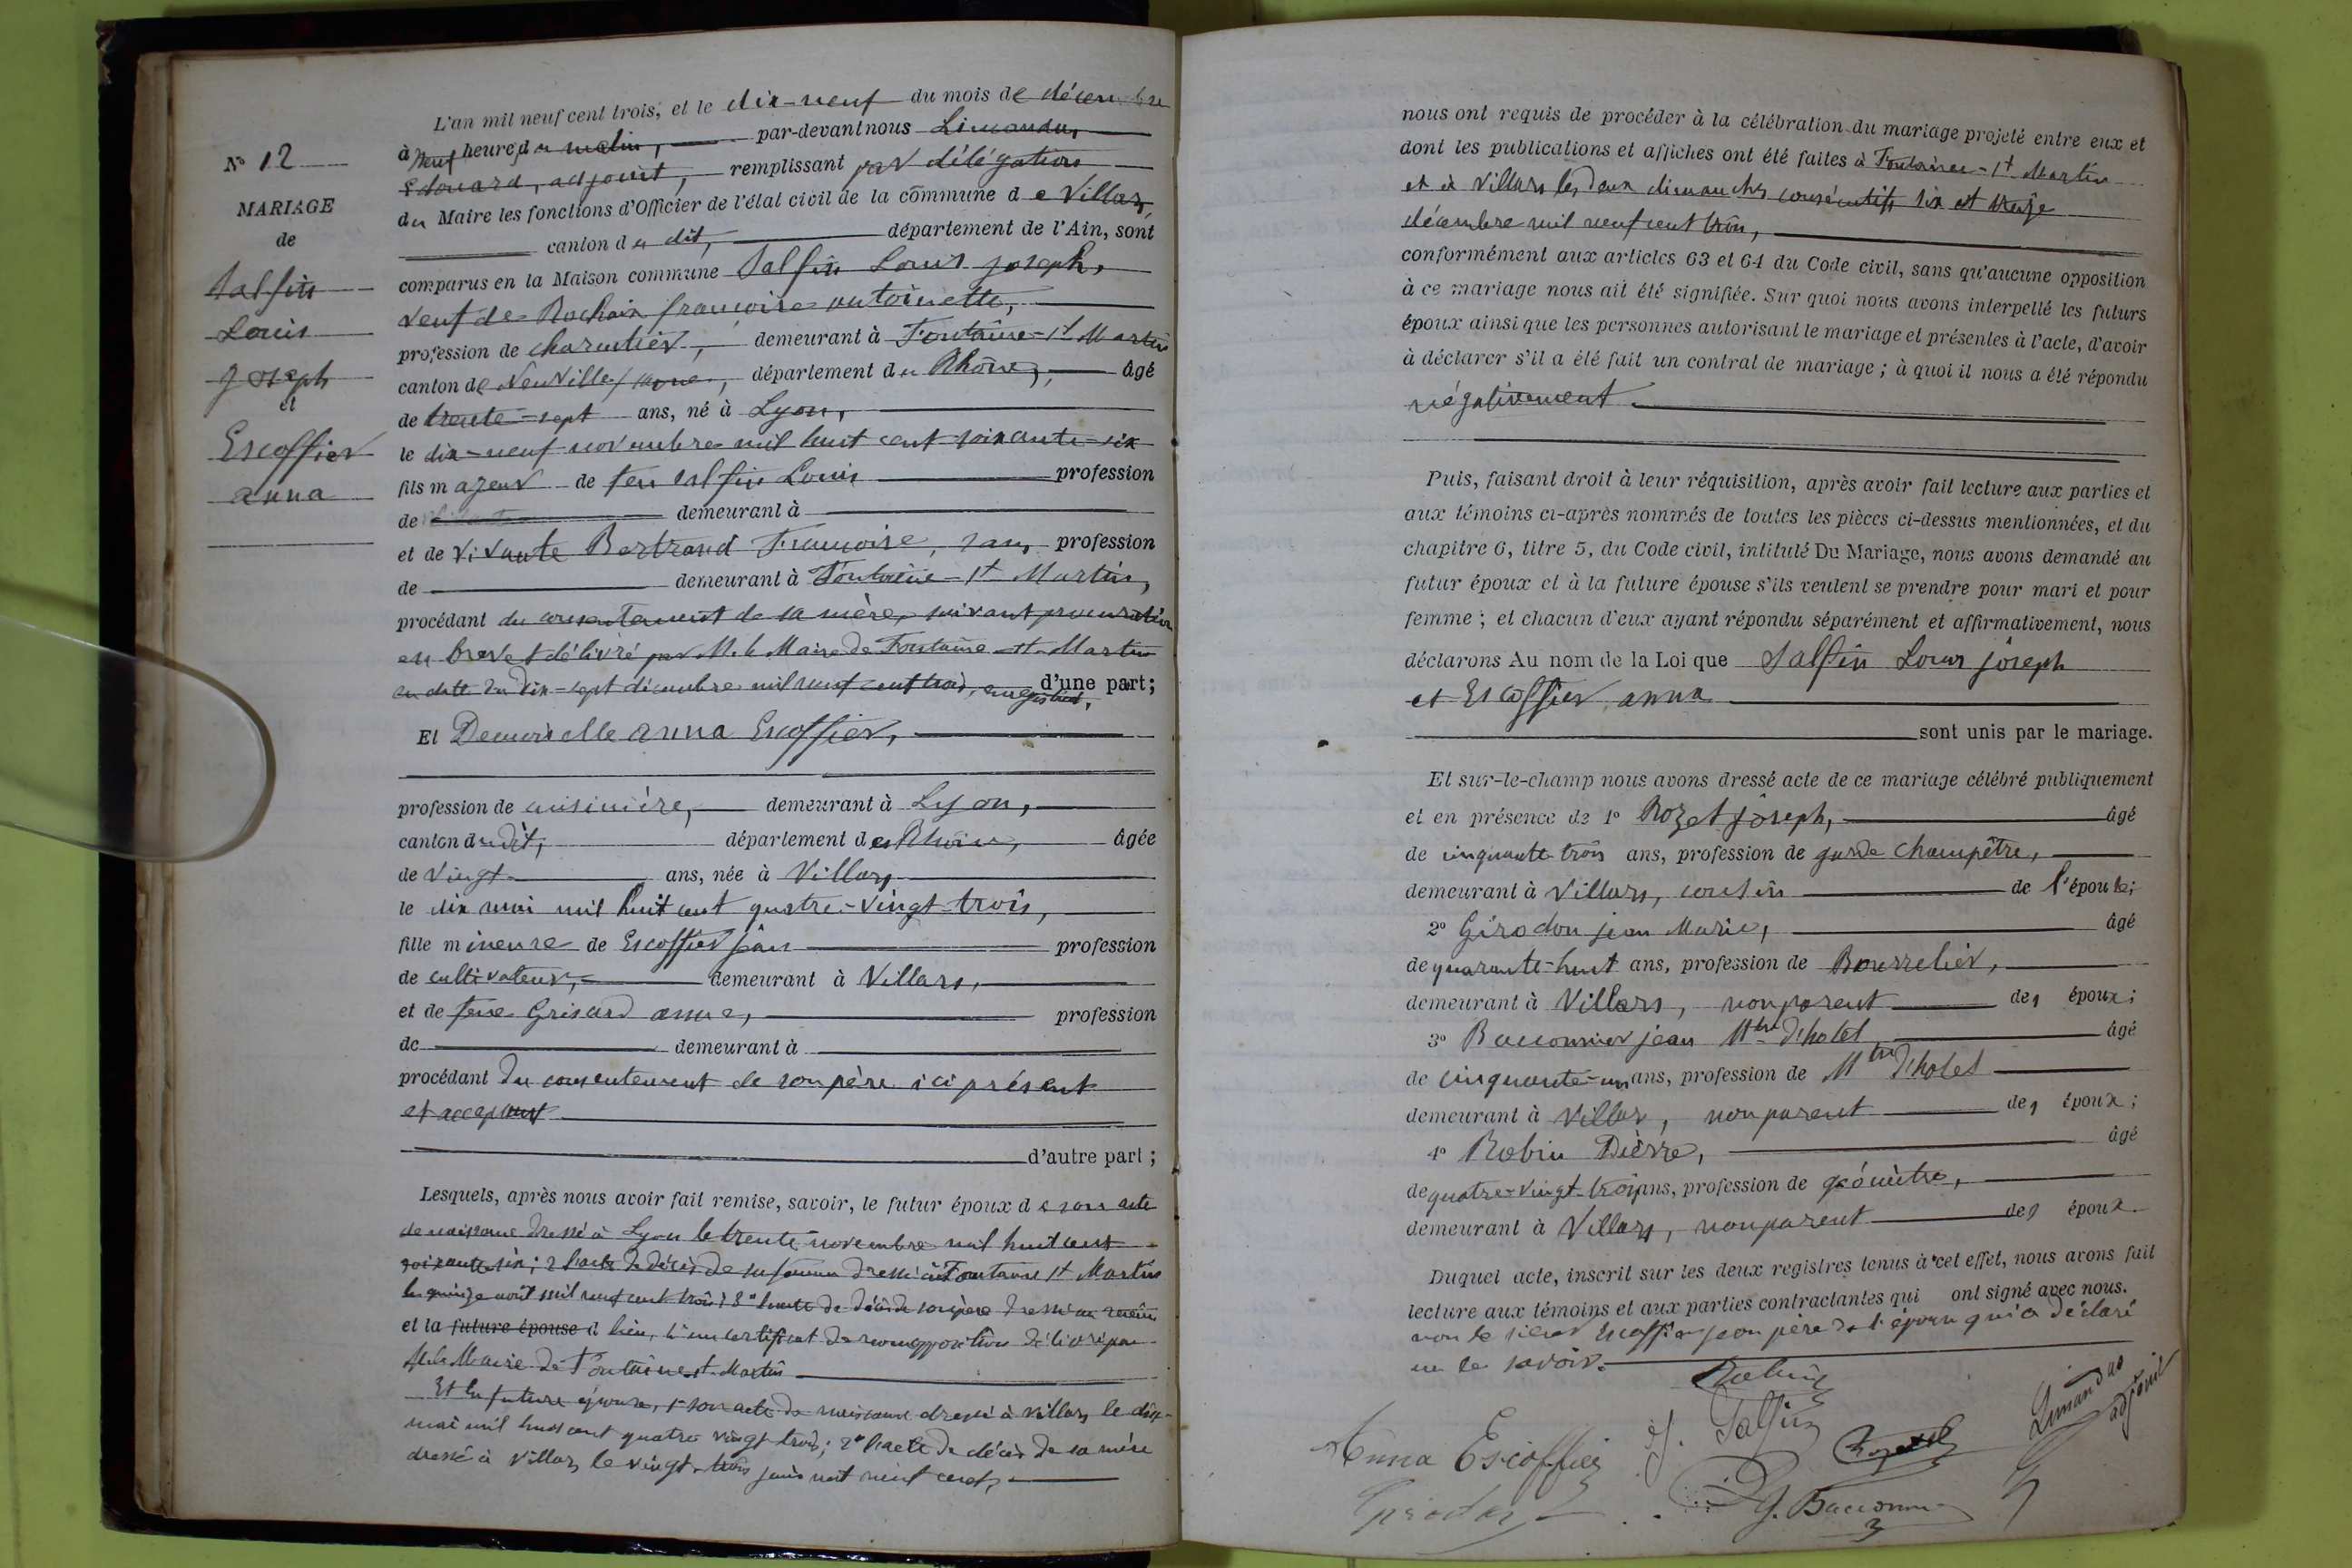 L'an mil neuf cent trois, et le dix-neuf du mois de décembre
à neuf heures du matin, par-devant nous Limandas
Edouard, adjoint, remplissant par délégation
du Maire les fonctions d'Officier de l'état civil de la commune de Villars,
canton du dit, département de l'Ain, sont
comparus en la Maison commune Salfin Louis joseph,
veuf de Rochaix françoise antoinette,
profession de charcutier, demeurant à Fontaine-St Martin
canton de Neuville s/ saone, département du Rhône, âgé
de trente-sept ans, né à Lyon,
le dix-neuf novembre mil huit cent soixante-six
fils majeur de feu Salfin Louis profession
de demeurant à
et de vivante Bertrand Françoise, sans profession
de demeurant à Fontaine-St Martin,
procédant du consentement de sa mère, suivant procuration
en brevet délivré par M. le Maire de Fontaine-St-Martin
en date du dix-sept décembre mil neuf cent trois, enregistré, d'une part;
Et Demoiselle anna Escoffier,
profession de cuisinière, demeurant à Lyon,
canton du dit, département du Rhône, âgée
de vingt ans, née à Villars
le dix mai mil huit cent quatre-vingt-trois,
fille mineure de Escoffier jean profession
de cultivateur, demeurant à Villars,
et de feue Grisard anne, profession
de demeurant à
procédant du consentement de son père ici présent
et acceptant
d'autre part;
Lesquels, après nous avoir fait remise, savoir, le futur époux de son acte
de naissance dressé à Lyon le trente novembre mil huit cent
soixante-six; 2° l'acte de décès de sa femme dressé à Fontaine St Martin
le quinze août mil neuf cent trois; 3° l'acte de décès de son père dressé au même
et la future épouse lieu, 4° un certificat de non opposition délivré par
M. le Maire de Fontaine St-Martin
Et la future épouse, 1° son acte de naissance dressé à Villars le dix
mai mil huit cent quatre vingt trois; 2° l'acte de décès de sa mère
dressé à Villars le vingt-trois juin mil neuf cent,
N° 12
MARIAGE
de
Salfin
Louis
Joseph
et
Escoffier
anna
nous ont requis de procéder à la célébration du mariage projeté entre eux et
dont les publications et affiches ont été faites à Fontaines-St Martin
et à Villars les deux dimanches consécutifs six et treize
décembre mil neuf cent trois,
conformément aux articles 63 et 64 du Code civil, sans qu'aucune opposition
à ce mariage nous ait été signifiée. Sur quoi nous avons interpellé les futurs
époux ainsi que les personnes autorisant le mariage et présentes à l'acte, d'avoir
à déclarer s'il a été fait un contrat de mariage; à quoi il nous a été répondu
négativement.
Puis, faisant droit à leur réquisition, après avoir fait lecture aux parties et
aux témoins ci-après nommés de toutes les pièces ci-dessus mentionnées, et du
chapitre 6, titre 5, du Code civil, intitulé Du Mariage, nous avons demandé au
futur époux et à la future épouse s'ils veulent se prendre pour mari et pour
femme; et chacun d'eux ayant répondu séparément et affirmativement, nous
déclarons Au nom de la Loi que Salfin Louis joseph
et Escoffier anna
sont unis par le mariage.
Et sur-le-champ nous avons dressé acte de ce mariage célébré publiquement
et en présence de 1° Rozet joseph, âgé
de cinquante-trois ans, profession de garde champêtre,
demeurant à Villars, cousin de l'épouse;
2° Girodon jean Marie, âgé
de quarante-huit ans, profession de Bourrelier,
demeurant à Villars, non parent des époux;
3° Bacconnier jean Mtre d'hotel âgé
de cinquante-un ans, profession de Mtre d'hotel
demeurant à Villars, non parent des époux;
4° Robin Pierre, âgé
de quatre-vingt-trois ans, profession de géomètre,
demeurant à Villars, non parent des époux.
Duquel acte, inscrit sur les deux registres tenus à cet effet, nous avons fait
lecture aux témoins et aux parties contractantes qui ont signé avec nous.
non le sieur Escoffier jean père de l'épouse qui a déclaré
ne le savoir.
Robin
Limandas
adjoint
J. Salfin
Rozet
Anna Escoffier
J. Bacconnier
Girodon